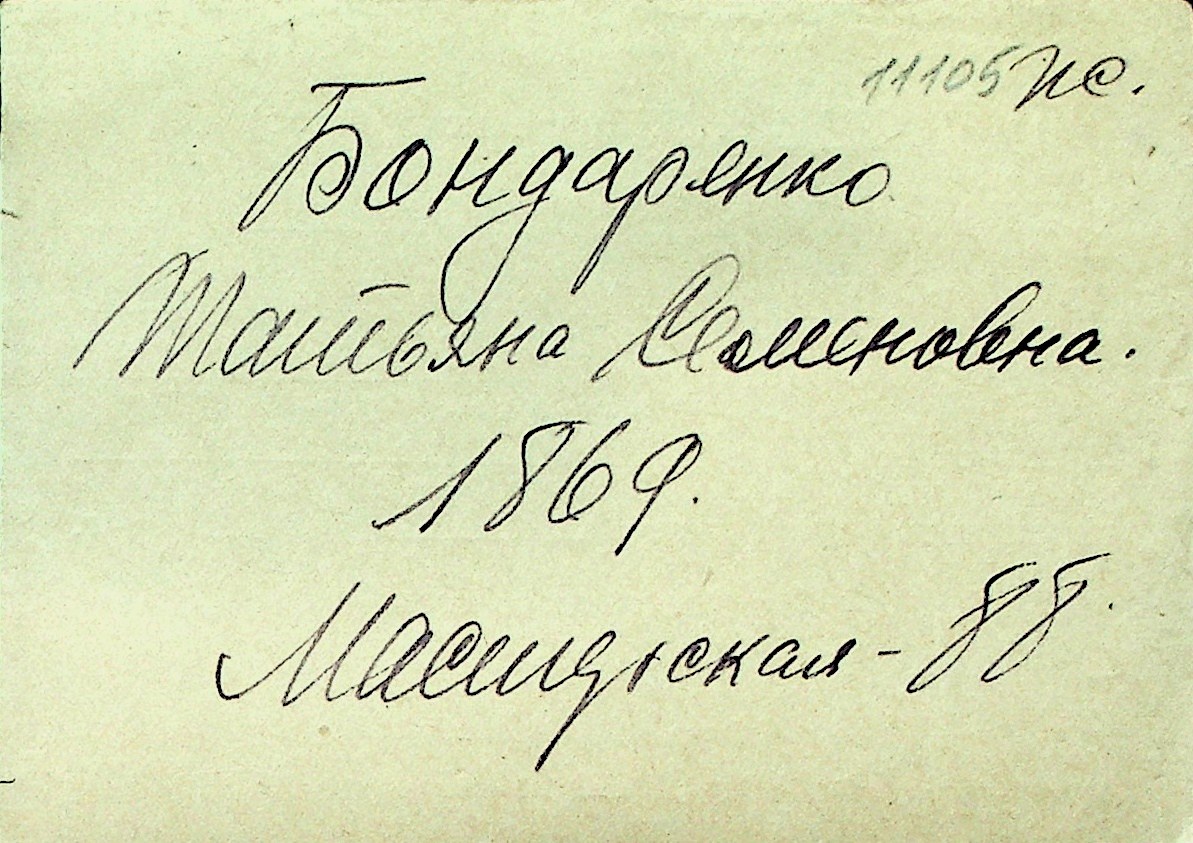 11105 пс.
Бондаренко
Татьяна Семеновна.
1869.
Мастерская - 88.